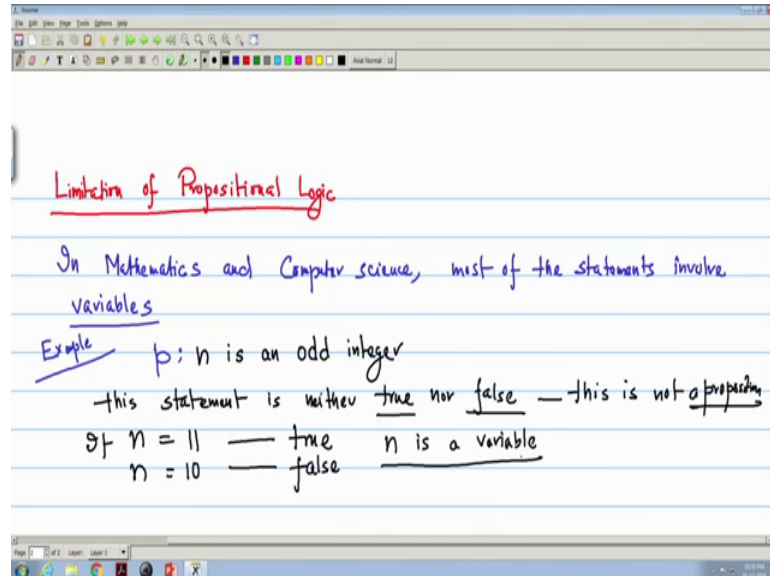 Journal
File Edit View Page Tools Options Help
Arial Normal 12
Limitation of Propositional Logic
In Mathematics and Computer science, most of the statements involve
variables
Example p: n is an odd integer
this statement is neither true nor false — this is not a proposition
If n = 11 — true n is a variable
n = 10 — false
Page 2 of 2 Layer: Layer 1